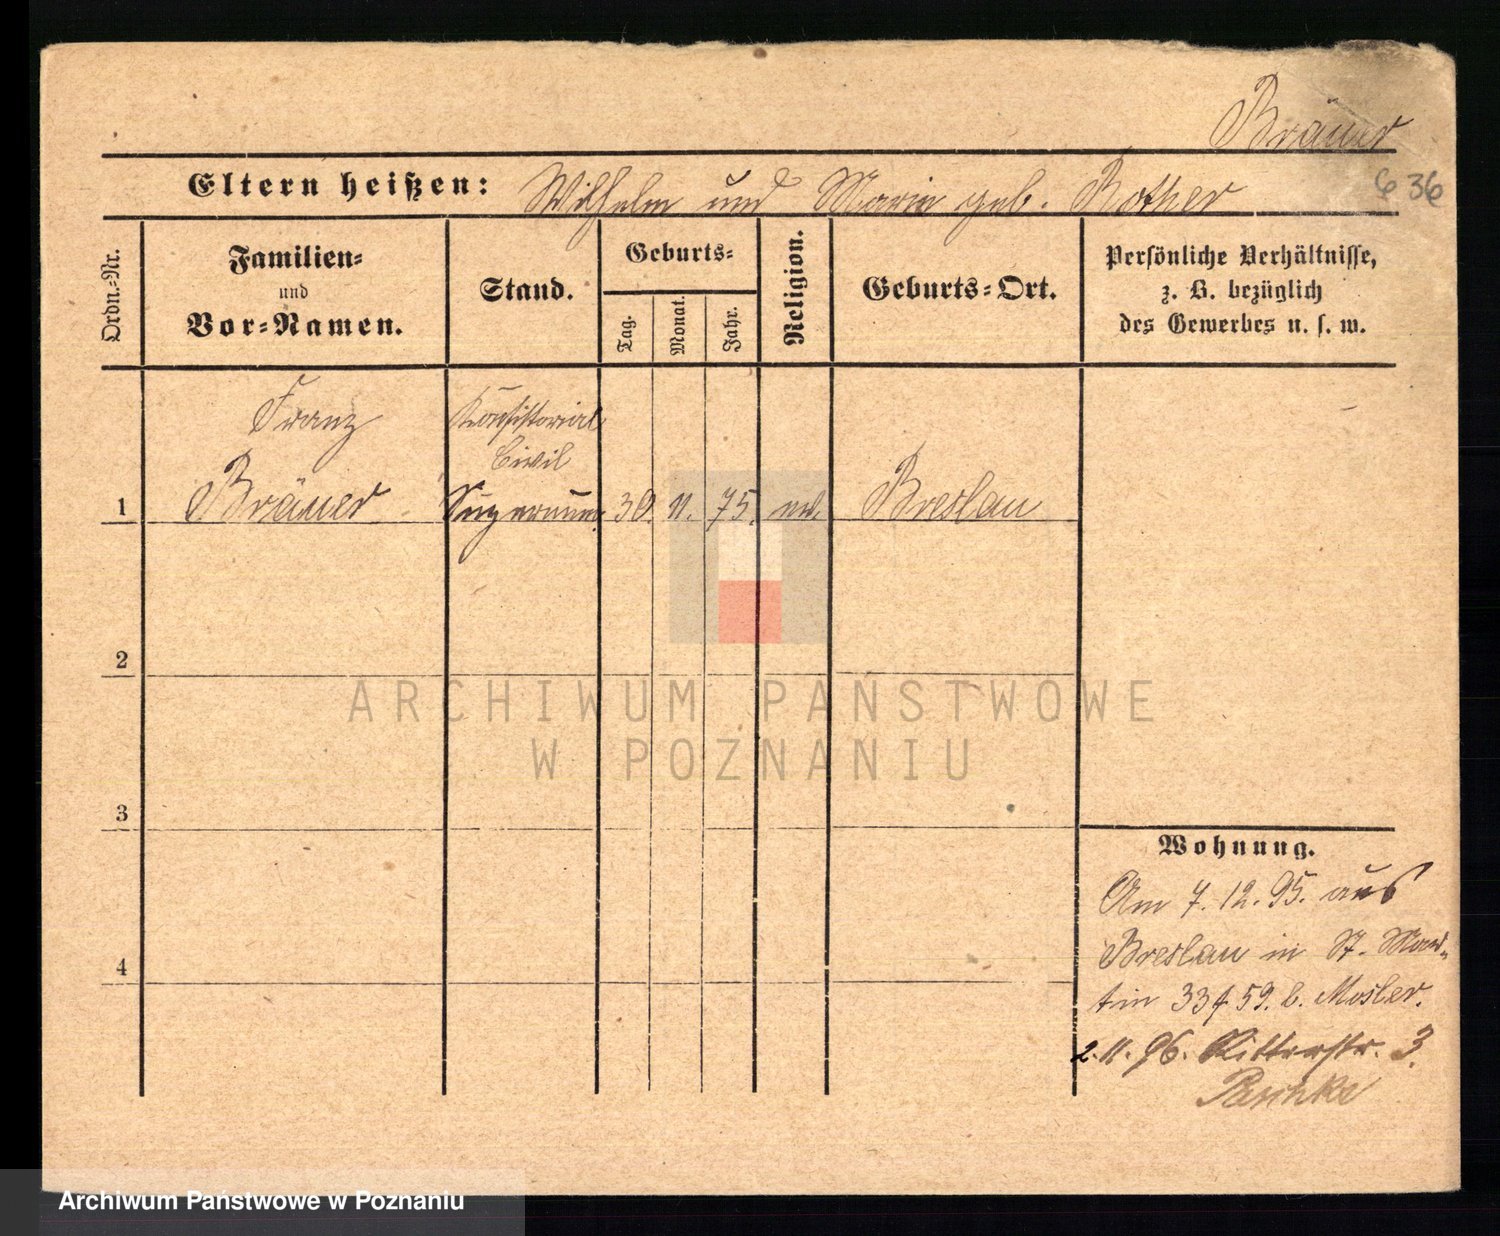 Bräuer
Eltern heißen: Wilhelm und Marie geb. Rother
636
Ordn.-Nr.
Familien-
und
Vor-Namen.
Stand.
Geburts-
Tag.
Monat.
Jahr.
Religion.
Geburts-Ort.
Persönliche Verhältnisse,
z. B. bezüglich
des Gewerbes u. s. w.
Franz
Bräuer
Konsistorial
Civil
Supernum.
1 30. 11. 75. ev. Breslau
2
3
4
Wohnung.
Am 7.12.95. aus
Breslau in St. Mar-
tin 59. b. Mosler.
2.11.96. Ritterstr. 3.
Paschke
ARCHIWUM PAŃSTWOWE
W POZNANIU
Archiwum Państwowe w Poznaniu